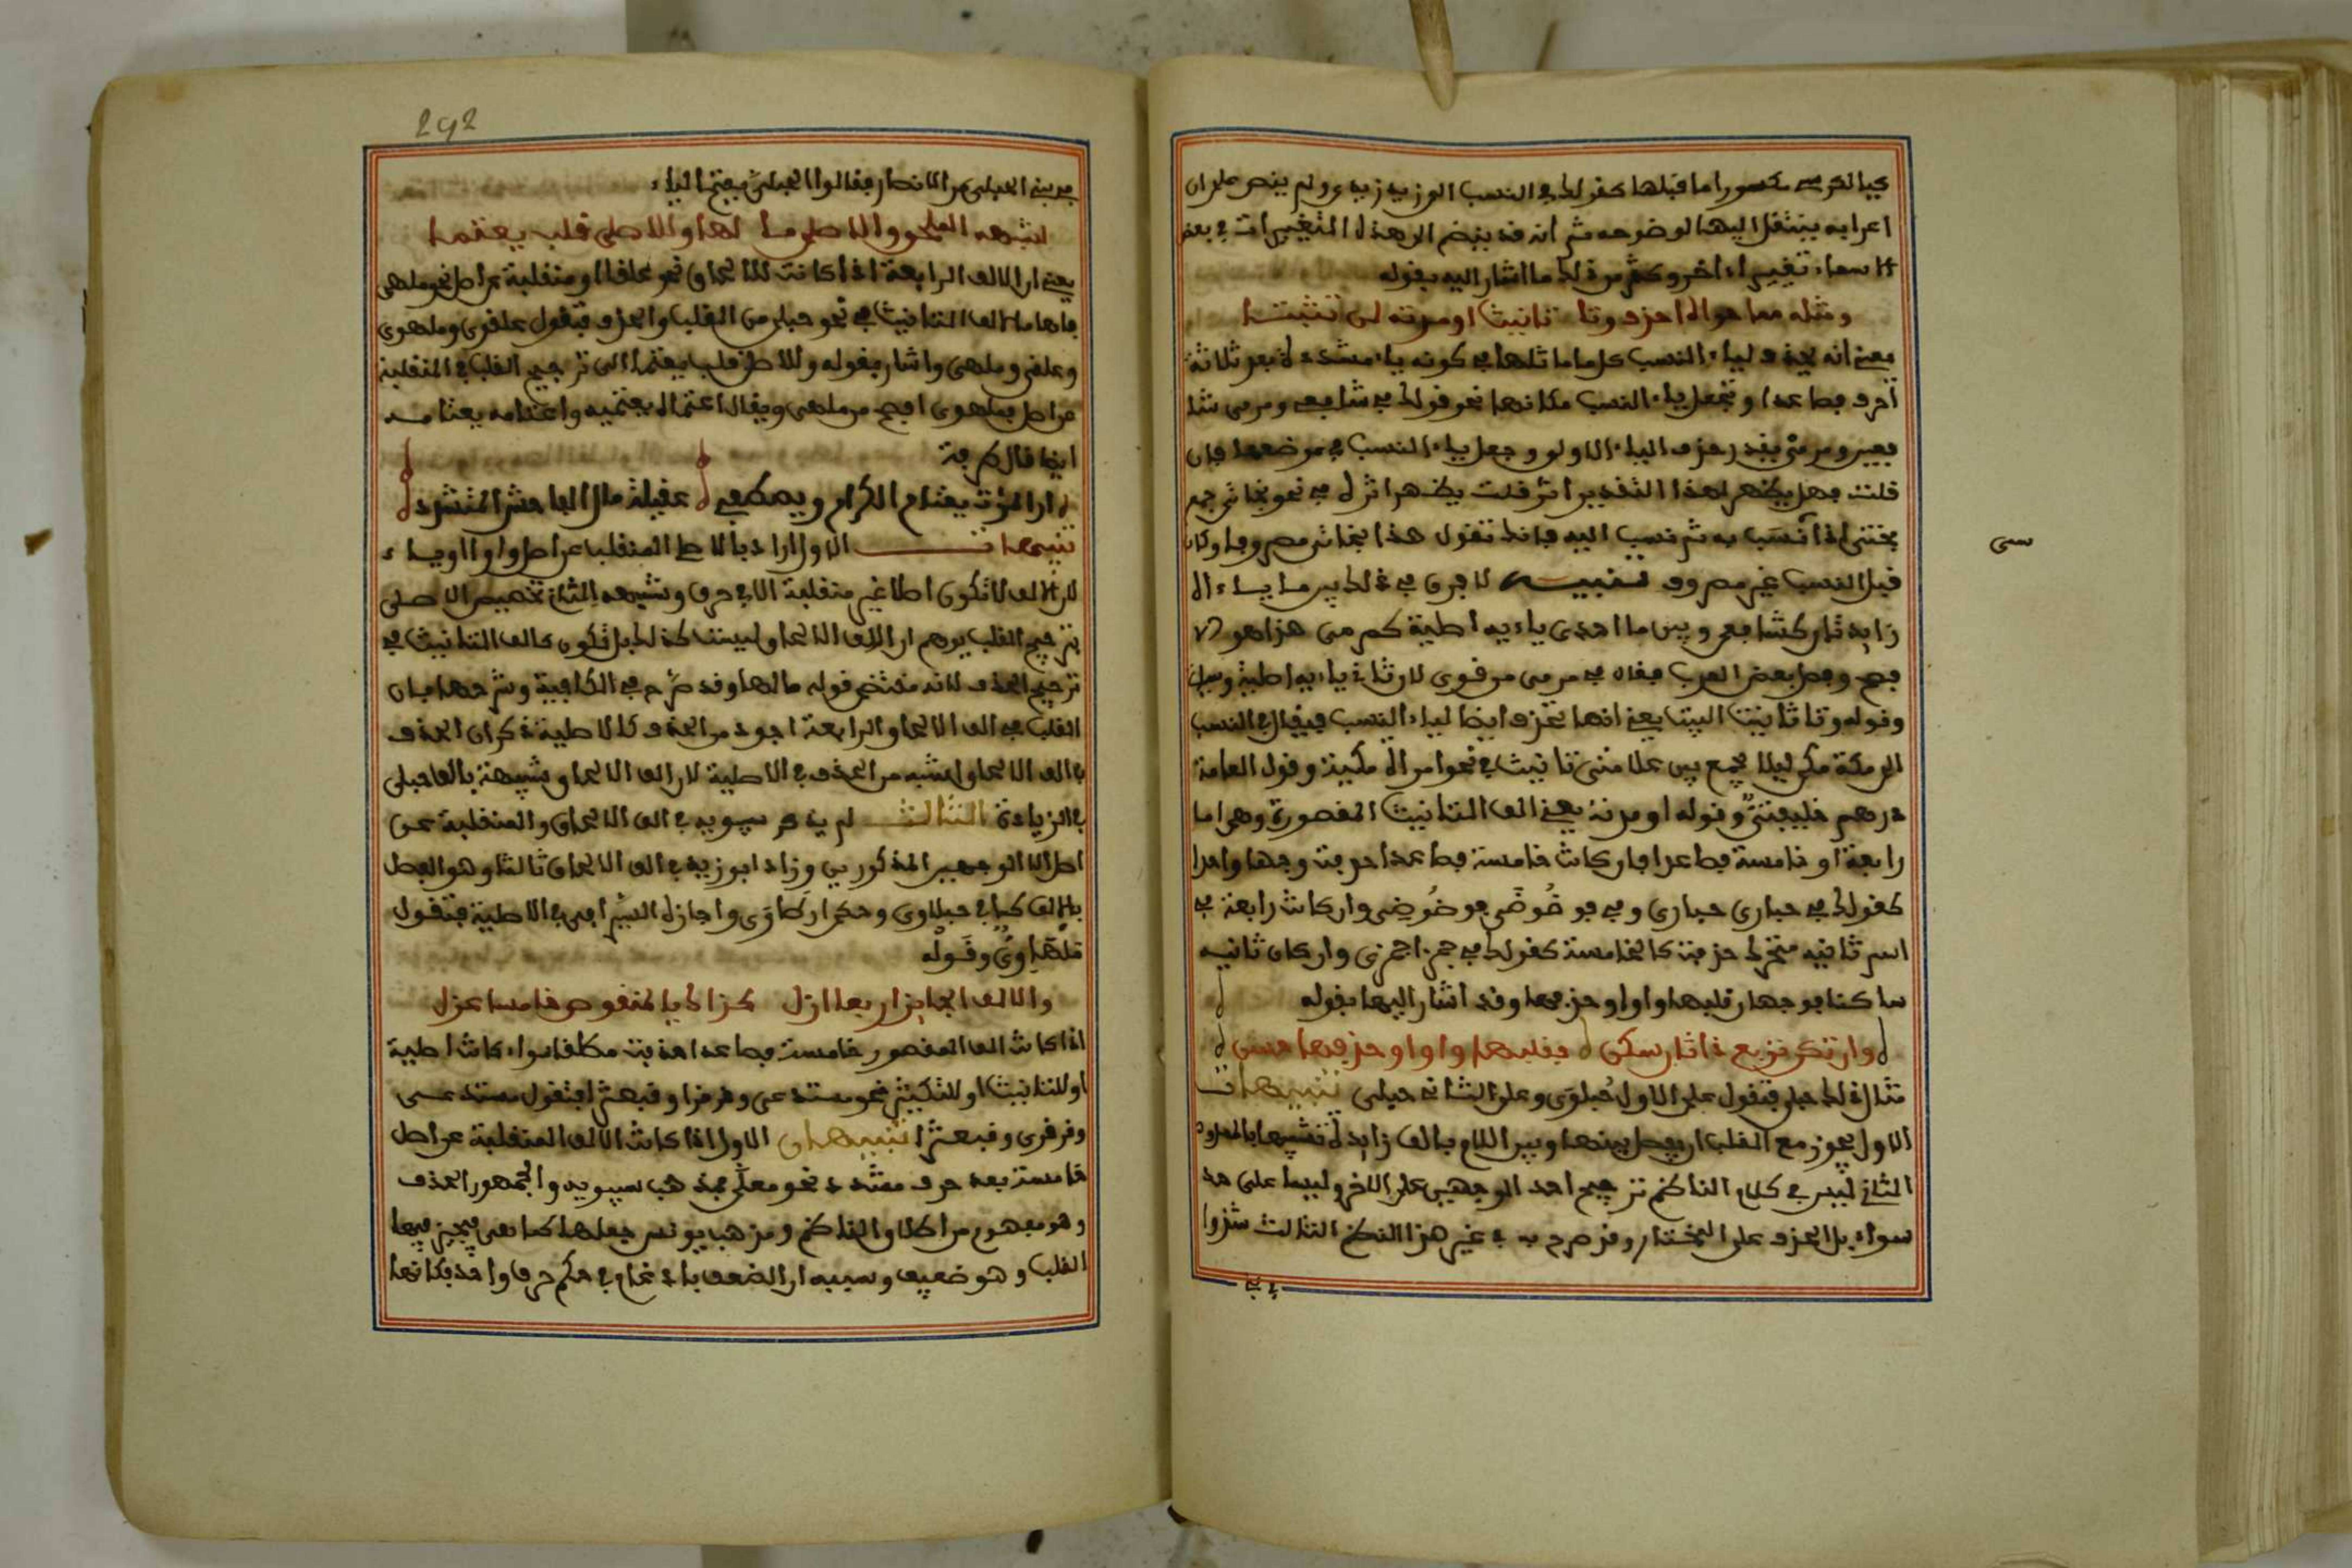 كيا الكرسي مكسورا ما قبلها كقولك في النسب الى زيد زيدي ولم ينص على ان
اعرابه ينتقل اليها لوضوحه ثم انه قد ينضم الى هذه التغييرات في بعض
الاسماء تغيير اخر وكثر من ذلك ما اشار اليه بقوله
ومثله مما حواه احذف وتا تانيث او مدته لا تثبتا
يعني انه يحذف لياء النسب كل ما ماثلها في كونه ياء مشددة بعد ثلاثة
احرف فصاعدا وتجعل ياء النسب مكانها نحو قولك في شافعي ومرمي شا
فعي ومرمي بقدر حذف الياء الاولى وجعل ياء النسب في موضعها فان
قلت فهل يظهر لهذا التقدير اثر قلت يظهر اثره في نحو بخاتي جمع
بختي اذا نسب به ثم نسب اليه فانك تقول هذا بخاتي مصروفا وكان
سمي
قبل النسب غير مصروف تنبيه لا فرق في ذلك بين ما ياءاه
زايدتان كشافعي وبين ما احدى ياءيه اصلية كمرمي هذا هو الا
فصح وفصل بعض العرب فقال في مرمي مرموي لان ثاني ياءيه اصلية
وقوله وتا تانيث البيت يعني انها تحذف ايضا لياء النسب فيقال في النسب
الى مكة مكي ليلا يجمع بين علامتي تانيث في نحو امراة مكية وقول العامة
درهم خليفتي وقوله او مدته يعني الف التانيث المقصورة وهي اما
رابعة او خامسة فصاعدا فان كانت خامسة فصاعدا حذفت وجها واحدا
كقولك في حبارى حباري وفي فوضوضى فوضوضي وان كانت رابعة في
اسم ثانيه متحرك حذفت كالخامسة كقولك في جمزى جمزي وان كان ثانيه
ساكنا فوجهان قلبها واوا وحذفها وقد اشار اليها بقوله
وان تكن تربع ذا ثان سكن فقلبها واوا وحذفها حسن
مثال ذلك حبلى فتقول على الاول حبلوي وعلى الثاني حبلي تنبيهات
الاول يجوز مع القلب ان يفصل بينها وبين اللام بالف زايدة تشبيها بالممدودة
الثاني ليس في كلام الناظم ترجيح احد الوجهين على الاخر وليسا على حد
سواء بل الحذف على المختار وقد صرح به في غير هذا النظم الثالث شذوا
في
292
في بني الحبلى من الانصار فقالوا الحبلي بفتح الباء
لشبهه الملحق والاصلي ما لها وللاصلي قلب يعتمى
يعني ان الالف الرابعة اذا كانت للالحاق نحو علقى او منقلبة عن اصل نحو ملهى
فلها ما لالف التانيث في نحو حبلى من القلب والحذف فتقول علقوي وملهوي
وعلقي وملهي واشار بقوله وللاصلي قلب يعتمى الى ترجيح القلب في المنقلبة
عن اصل فملهوي افصح من ملهي ويقال اعتماه يعتميه واعتامه يعتامه
ايضا قال طرفة
ارى الموت يعتام الكرام ويصطفي عقيلة مال الفاحش المتشدد
تنبيهات الاول اراد بالاصلي المنقلب عن اصل واو او ياء
لان الالف لا تكون اصلا غير منقلبة الا في حرف وشبهه الثاني تخصيص الاصلي
بترجيح القلب يوهم ان الف الالحاق ليست كذلك بل تكون كالف التانيث في
ترجيح الحذف لانه مقتضى قوله ما لها وقد صرح في الكافية وشرحها بان
القلب في الف الالحاق الرابعة اجود من الحذف كالاصلية ذكر ان الحذف
في الف الالحاق اشبه من الحذف في الاصلية لان الف الالحاق شبيهة بالف حبلى
في الزيادة الثالث لم يذكر سيبويه في الف الالحاق والمنقلبة عن
اصل الا الوجهين المذكورين وزاد ابو زيد في الف الالحاق ثالثا وهو الفصل
بالالف كما في حبلاوي وحكى ارطاوي واجازه السيرافي في الاصلية فتقول
ملهاوي وقوله
والالف الجايز اربعا ازل كذاك يا المنقوص خامسا عزل
اذا كانت الف المقصور خامسة فصاعدا حذفت مطلقا سواء كانت اصلية
او للتانيث او للتكثير نحو مستدعى وقرقرى وقبعثرى فتقول مستدعي
وقرقري وقبعثري تنبيهان الاول اذا كانت الالف المنقلبة عن اصل
خامسة بعد حرف مشدد نحو معلى فمذهب سيبويه والجمهور الحذف
وهو مفهوم من اطلاق الناظم ومذهب يونس جعلها كملهى فيجيز فيها
القلب وهو ضعيف وسببه ان الضعف بادغام في حكم حرف واحد فكانها